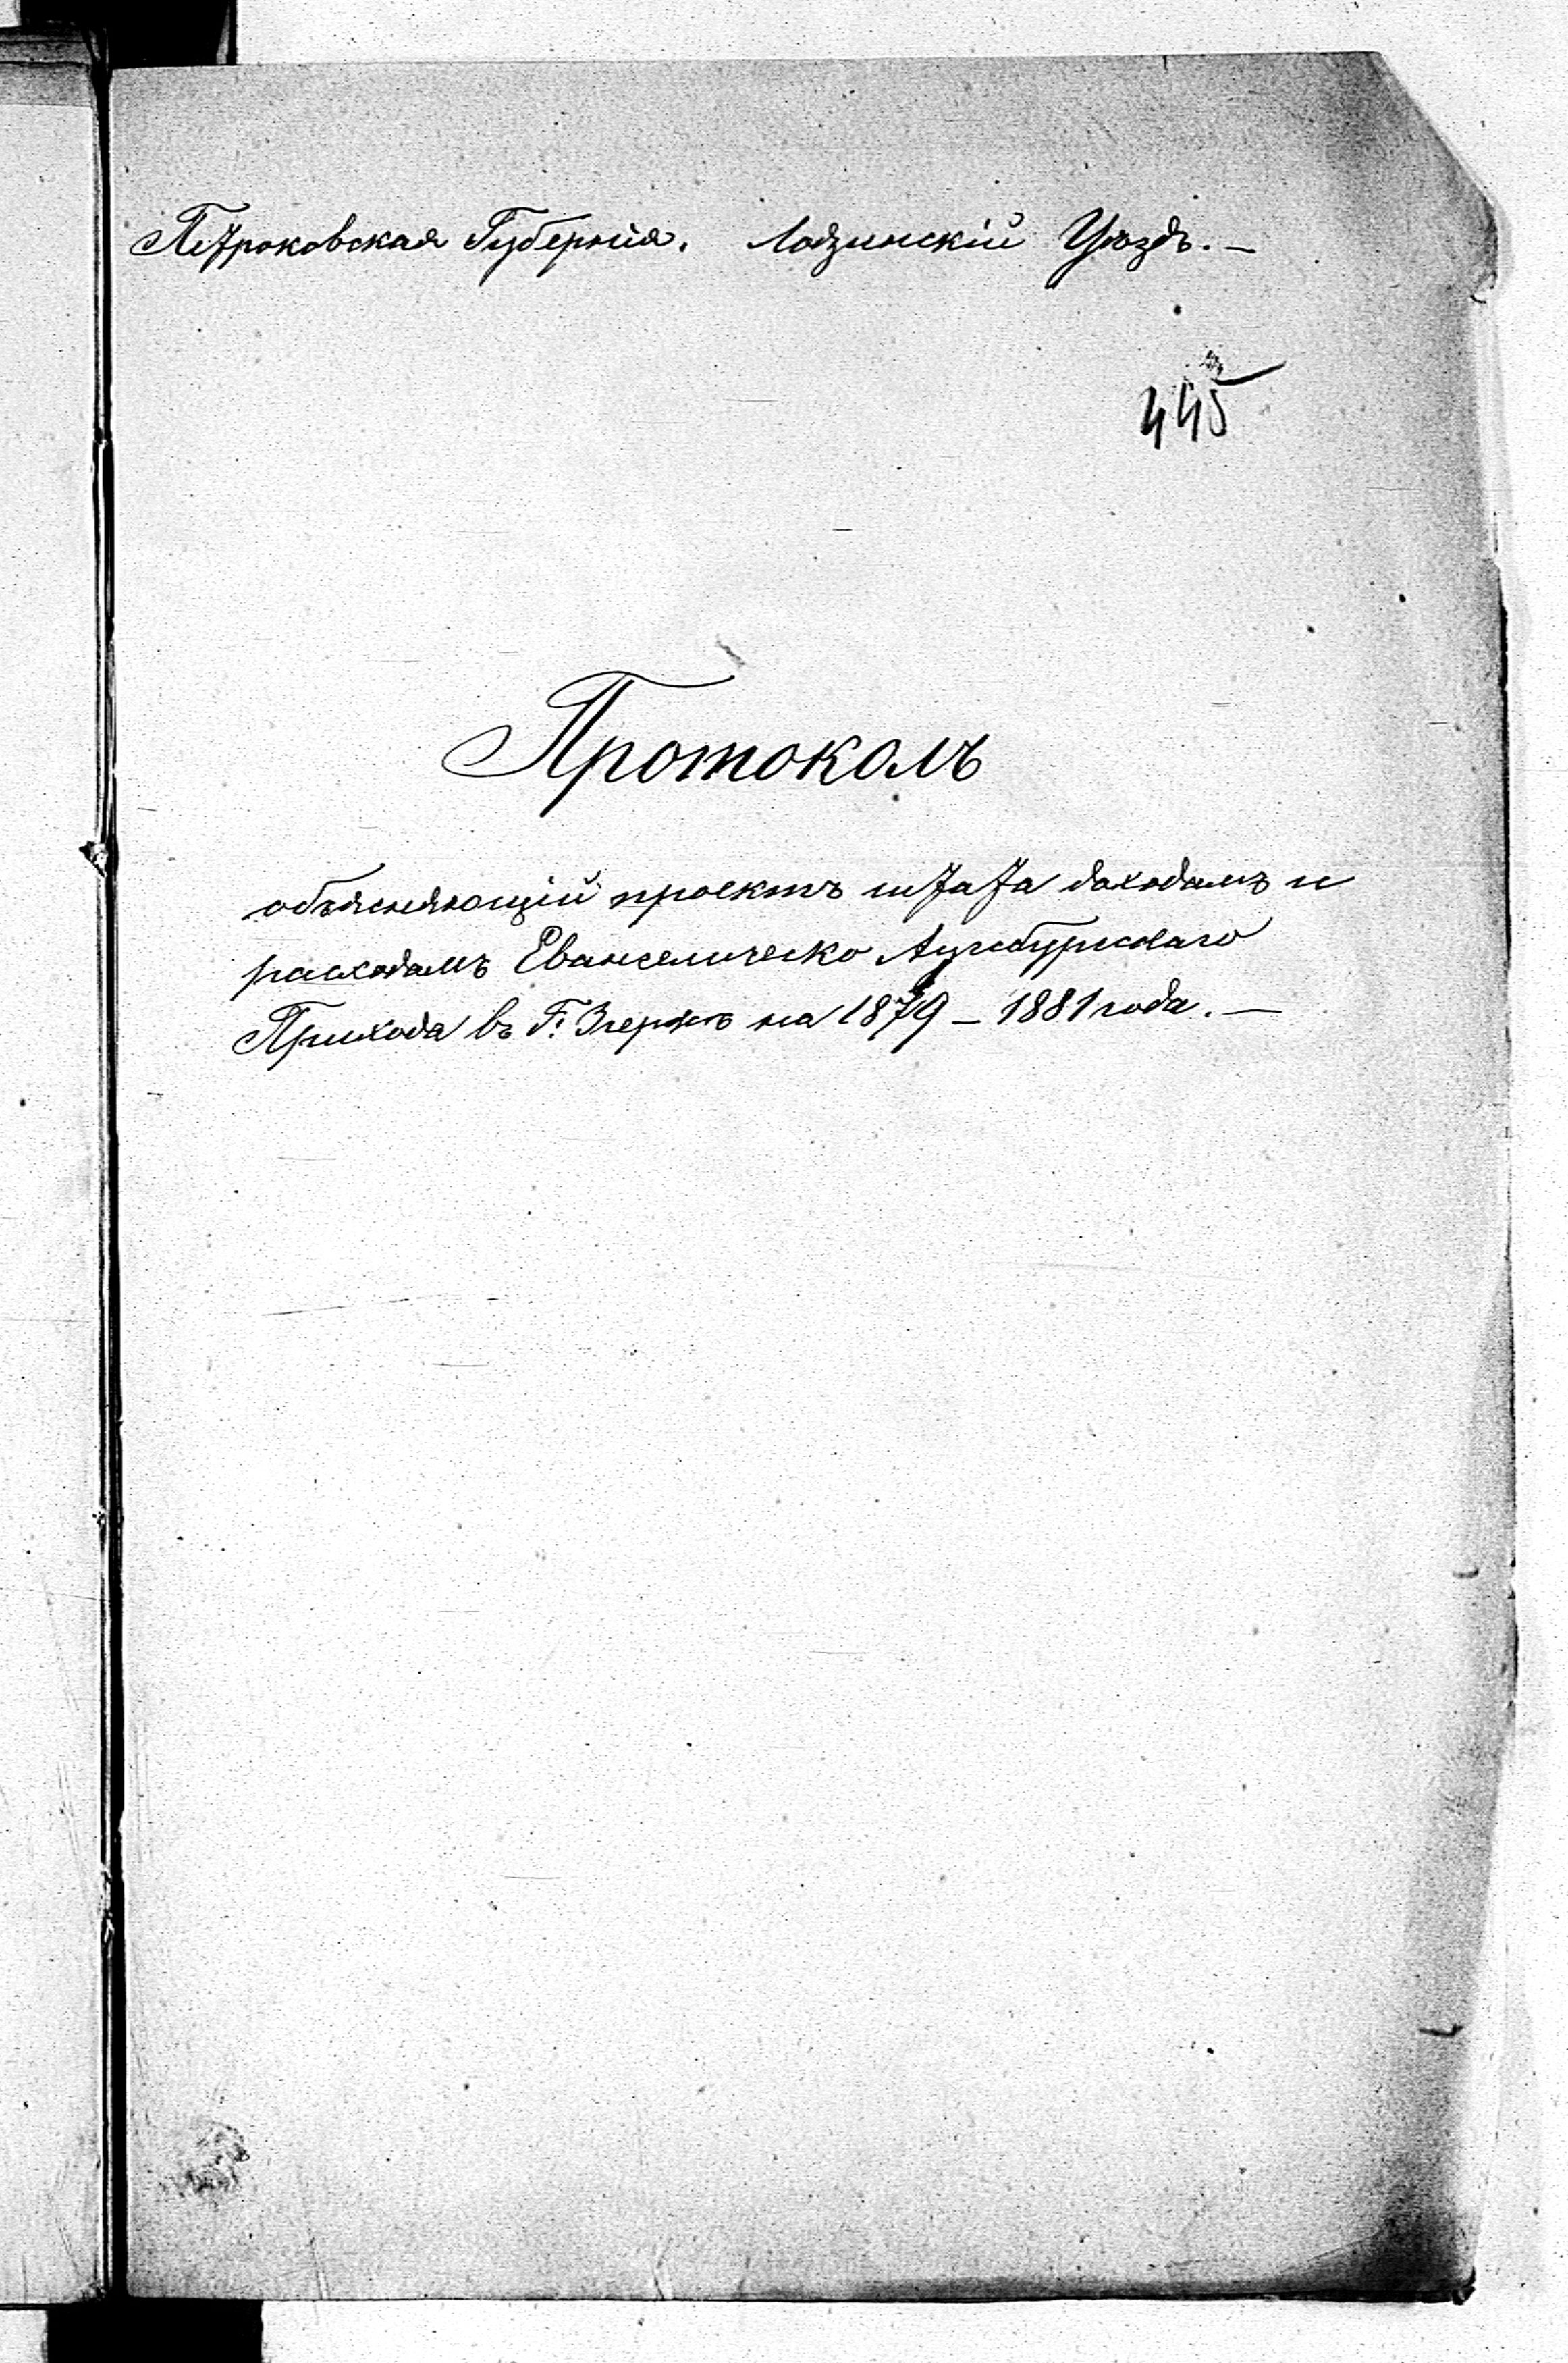 Петроковская Губернія. Лодзинскій Уѣздъ. —
445
Протоколъ
объясняющій проектъ штата доходамъ и
расходамъ Евангелическо Аугсбургскаго
Прихода въ Г. Згержѣ на 1879 – 1881 года. —